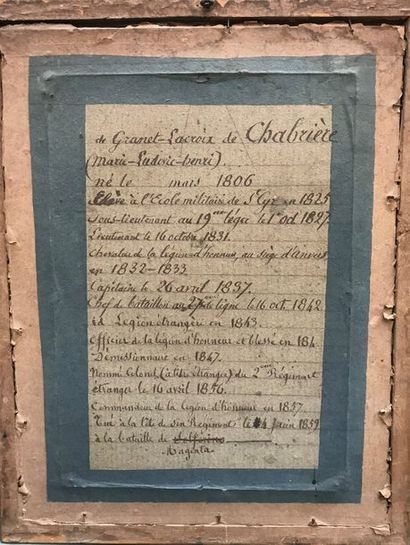 de Granet-Lacroix de Chabrière
(Marie-Ludovic-henri).
né le mars 1806
Elève à l'Ecole militaire de St Cyr en 1825
sous-lieutenant au 19me léger le 1er oct 1827.
Lieutenant le 16 octobre 1831.
Chevalier de la légion d'honneur, au siège d'anvers
en 1832-1833
Capitaine le 26 avril 1837.
Chef de bataillon au de ligne le 16 oct 1842
id Légion étrangère en 1843.
Officier de la légion d'honneur et blessé en 184
Démissionnaire en 1847.
Nommé Colonel (à titre étranger) du 2me Régiment
étranger le 16 avril 1856.
Commandeur de la légion d'honneur en 1857
Tué à la tête de son Régiment le 4 Juin 1859
à la bataille de Solférino
Magenta